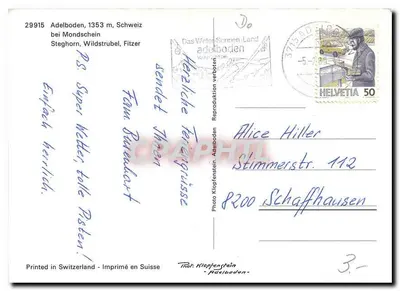 29915 Adelboden, 1353 m, Schweiz
bei Mondschein
Steghorn, Wildstrubel, Fitzer
Do
Das Winter-Ferien-Land
adelboden
3715 ADELBODEN
HELVETIA 50
Herzliche Feriengrüsse
sendet Ihnen
Fam.
P.S. Super Wetter, tolle Pisten!
Einfach herrlich.
Photo Klopfenstein, Adelboden
Reproduktion verboten
Alice Hiller
Stimmerstr. 112
8200 Schaffhausen
3.-
Printed in Switzerland - Imprimé en Suisse
Phot. Klopfenstein
-Adelboden-